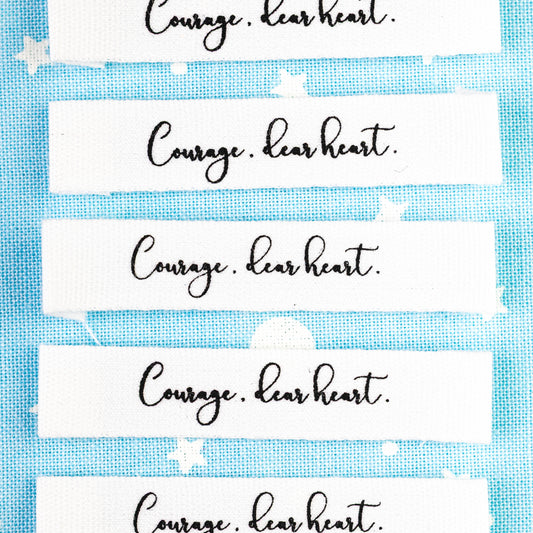 Courage. dear heart.
Courage. dear heart.
Courage. dear heart.
Courage. dear heart.
Courage. dear heart.